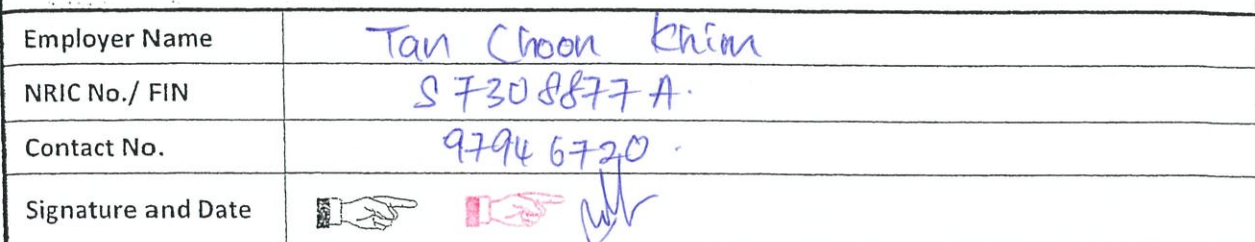 Employer Name Tan Choon Khim
NRIC No./ FIN S7308877A.
Contact No. 9794 6720.
Signature and Date